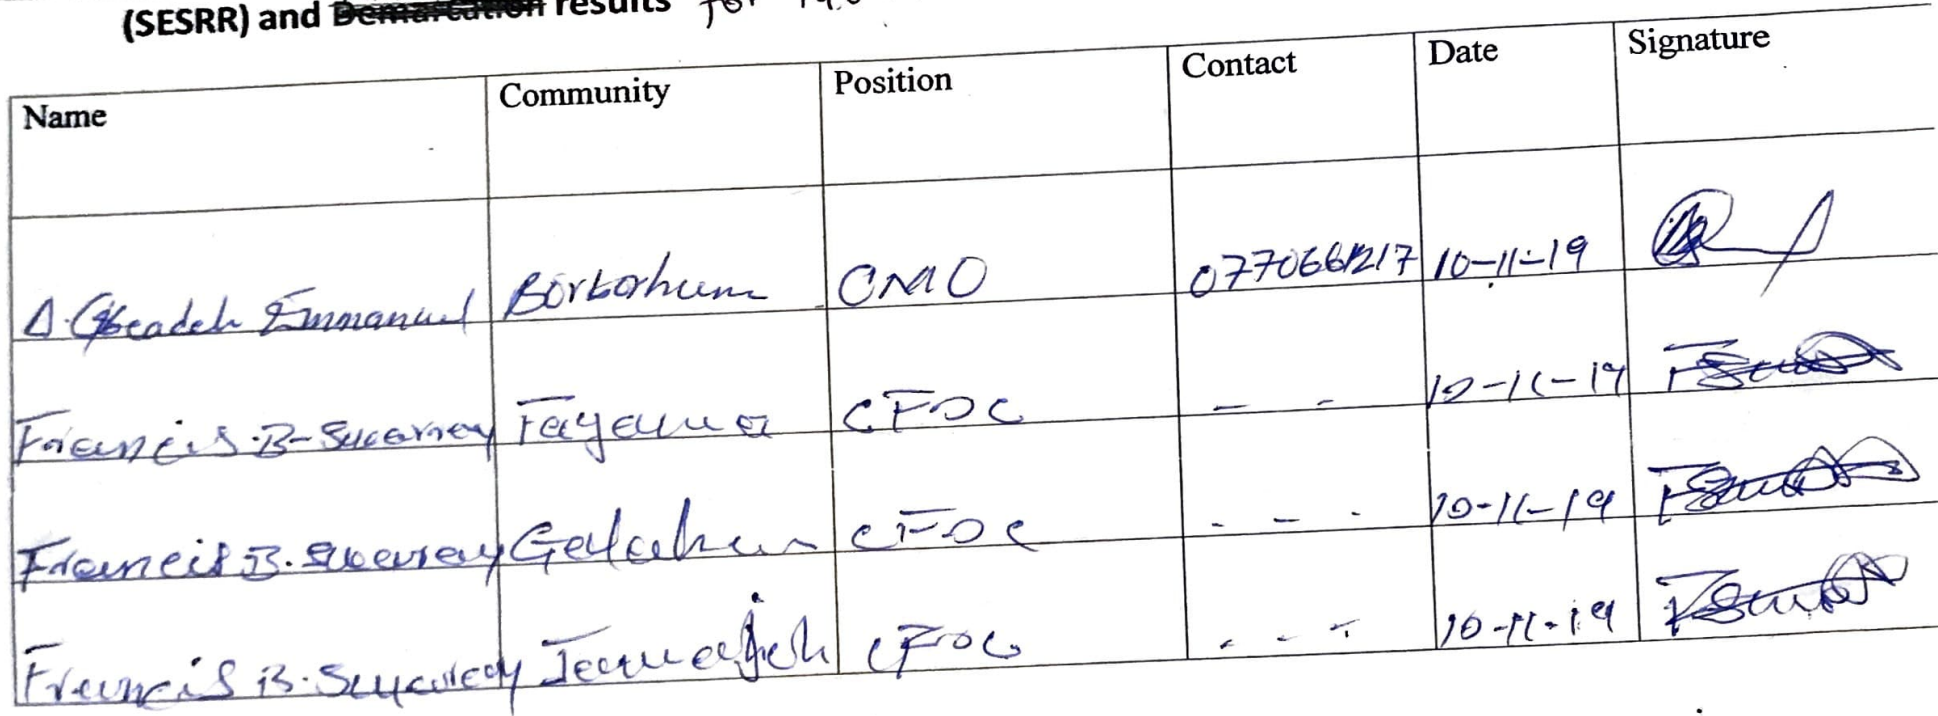 (SESRR) and Demarcation results for
Name Community Position Contact Date Signature
A. Gbeadeh Emmanuel Borborhum CMO 0770661217 10-11-19
Francis B. Swarray Fayama CFDC - - 10-11-19
Francis B. Swarray Galahun CFDC - - - 10-11-19
Francis B. Swarray CFDC - - - 10-11-19